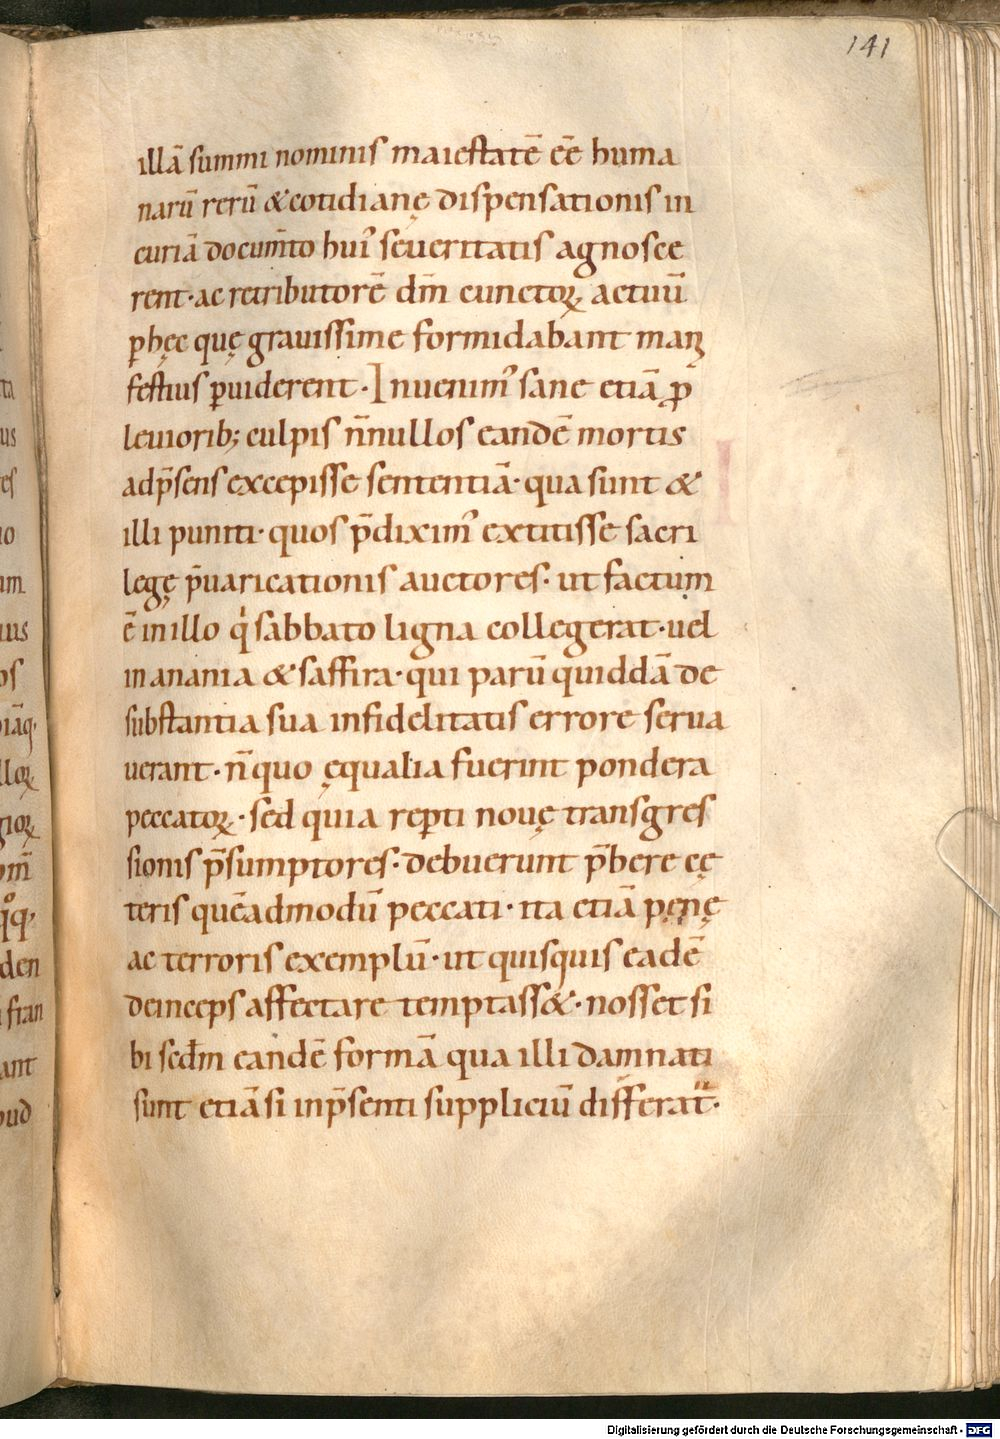 141
illā summi nominis maiestatē eē huma
narū rerū &cotidianę dispensationis in
curiā docum̄to hui' seueritatis agnosce
rent·ac retributorē dm̄ cunctoꝝ actuū
ꝑhęc quę grauissime formidabant mani
festius ꝑuiderent·Inuenim' sane etiā ꝓ
leuiorib; culpis n̄nullos eandē mortis
adp̄sens excepisse sententiā·qua sunt &
illi puniti·quos p̄dixim' extitisse sacri
legę p̄uaricationis auctores·ut factum
ē inillo qͥ sabbato ligna collegerat·uel
in anania & saffira·qui parū quiddā de
substantia sua infidelitatis errore serua
uerant·n̄quo ęqualia fuerint pondera
peccatoꝝ·sed quia reꝑti nouę transgres
sionis p̄sumptores·debuerunt p̄bere cę
teris quēadmodū peccati·ita etiā penę
ac terroris exemplū·ut quisquis eadē
deinceps affectare temptass&·nosset si
bi scdm̄ eandē formā qua illi damnati
sunt etiāsi inp̄senti suppliciū differat̄·
Digitalisierung gefördert durch die Deutsche Forschungsgemeinschaft - DFG